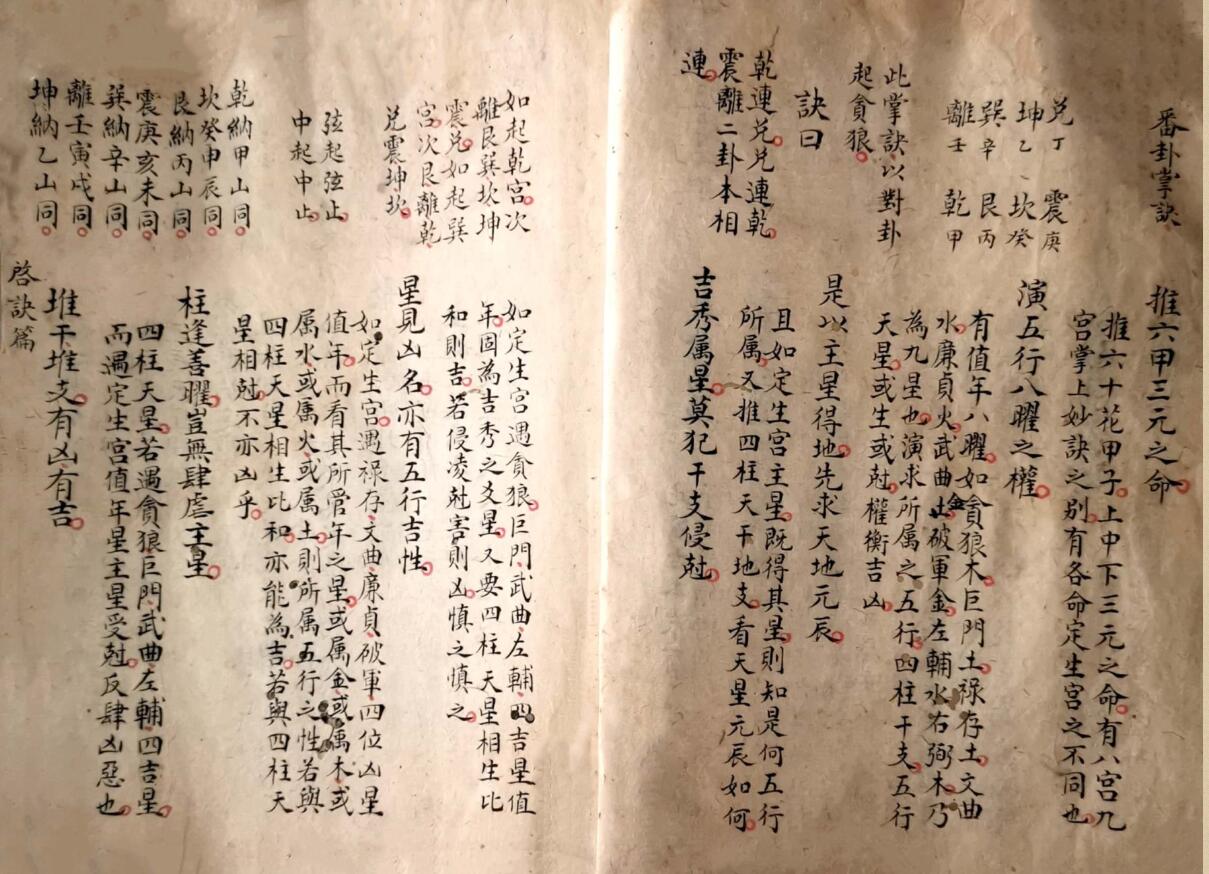 番卦掌訣
兌丁 震庚
坤乙 坎癸
巽辛 艮丙
離壬 乾甲
此掌訣以對卦
起貪狼
訣曰
乾連兌兌連乾
震離二卦本相
連
推六甲三元之命
推六十花甲子上中下三元之命有八宮九
宮掌上妙訣之別有各命定生宮之不同也
演五行八曜之權
有值年八曜如貪狼木巨門土祿存土文曲
水廉貞火武曲金破軍金左輔水右弼木乃
為九星也演求所属之五行四柱干支五行
天星或生或尅權衡吉凶
是以主星得地先求天地元辰
且如定生宮主星既得其星則知是何五行
所属又推四柱天干地支看天星元辰如何
吉秀属星莫犯干支侵尅
如起乾宮次
離艮巽坎坤
震兌如起巽
宮次艮離乾
兌震坤坎
弦起弦止
中起中止
乾納甲山同
坎癸申辰同
艮納丙山同
震庚亥未同
巽納辛山同
離壬寅戌同
坤納乙山同
如定生宮遇貪狼巨門武曲左輔四吉星值
年固為吉秀之爻星又要四柱天星相生比
和則吉若侵凌尅害則凶慎之慎之
星見凶名亦有五行吉性
如定生宮遇祿存文曲廉貞破軍四位凶星
值年而看其所管年之星或属金或属木或
属水或属火或属土則所属五行之性若與
四柱天星相生比和亦能為吉若與四柱天
星相尅不亦凶乎
柱逢善曜豈無肆虐主星
四柱天星若遇貪狼巨門武曲左輔四吉星
而遇定生宮值年星主星受尅反肆凶惡也
堆干堆支有凶有吉
啓訣篇